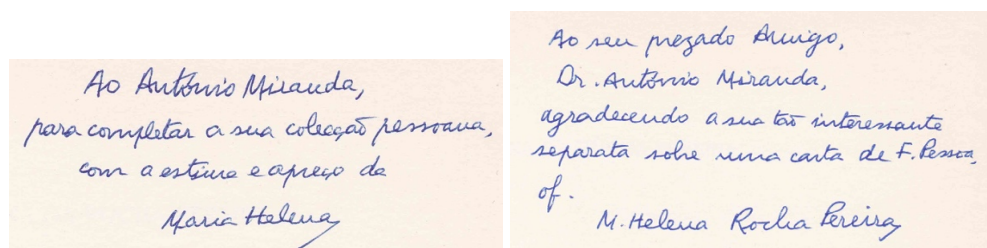 Ao António Miranda,
para completar a sua colecção pessoana,
com a estima e apreço da
Maria Helena
Ao seu prezado Amigo,
Dr. António Miranda,
agradecendo a sua tão interessante
separata sobre uma carta de F. Pessoa,
of.
M. Helena Rocha Pereira